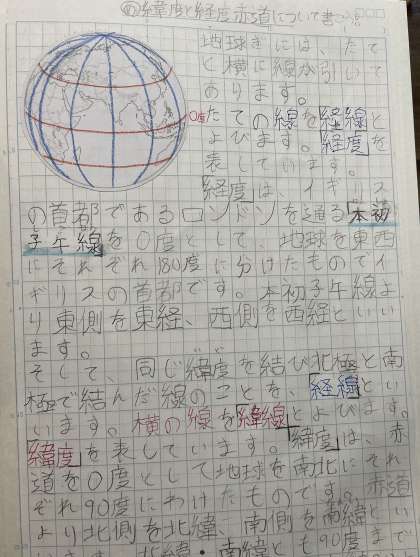 め緯度と経度赤道について書こう!
地球ぎには、たて
と横に線が引いて
あります。
0度
たての線を経線と
よびます。経度を
表しています。
経度は、イギリス
の首都であるロンドンを通る本初
子午線を0度として、地球を東西
にそれぞれ180度に分けたものでイ
ギリスの首都です。本初子午線よ
り東側を東経、西側を西経といい
ます。
そして、同じ緯度を結び北極と南
極で結んだ線のことを、経線とい
います。横の線を緯線とよびます。
緯度を表しています。緯度は、赤
道を0度として地球を南北にそれ
ぞれ90度にわけたものです。赤道
より北側を北緯、南側を南緯とい
います。北緯・南緯とも90度まで